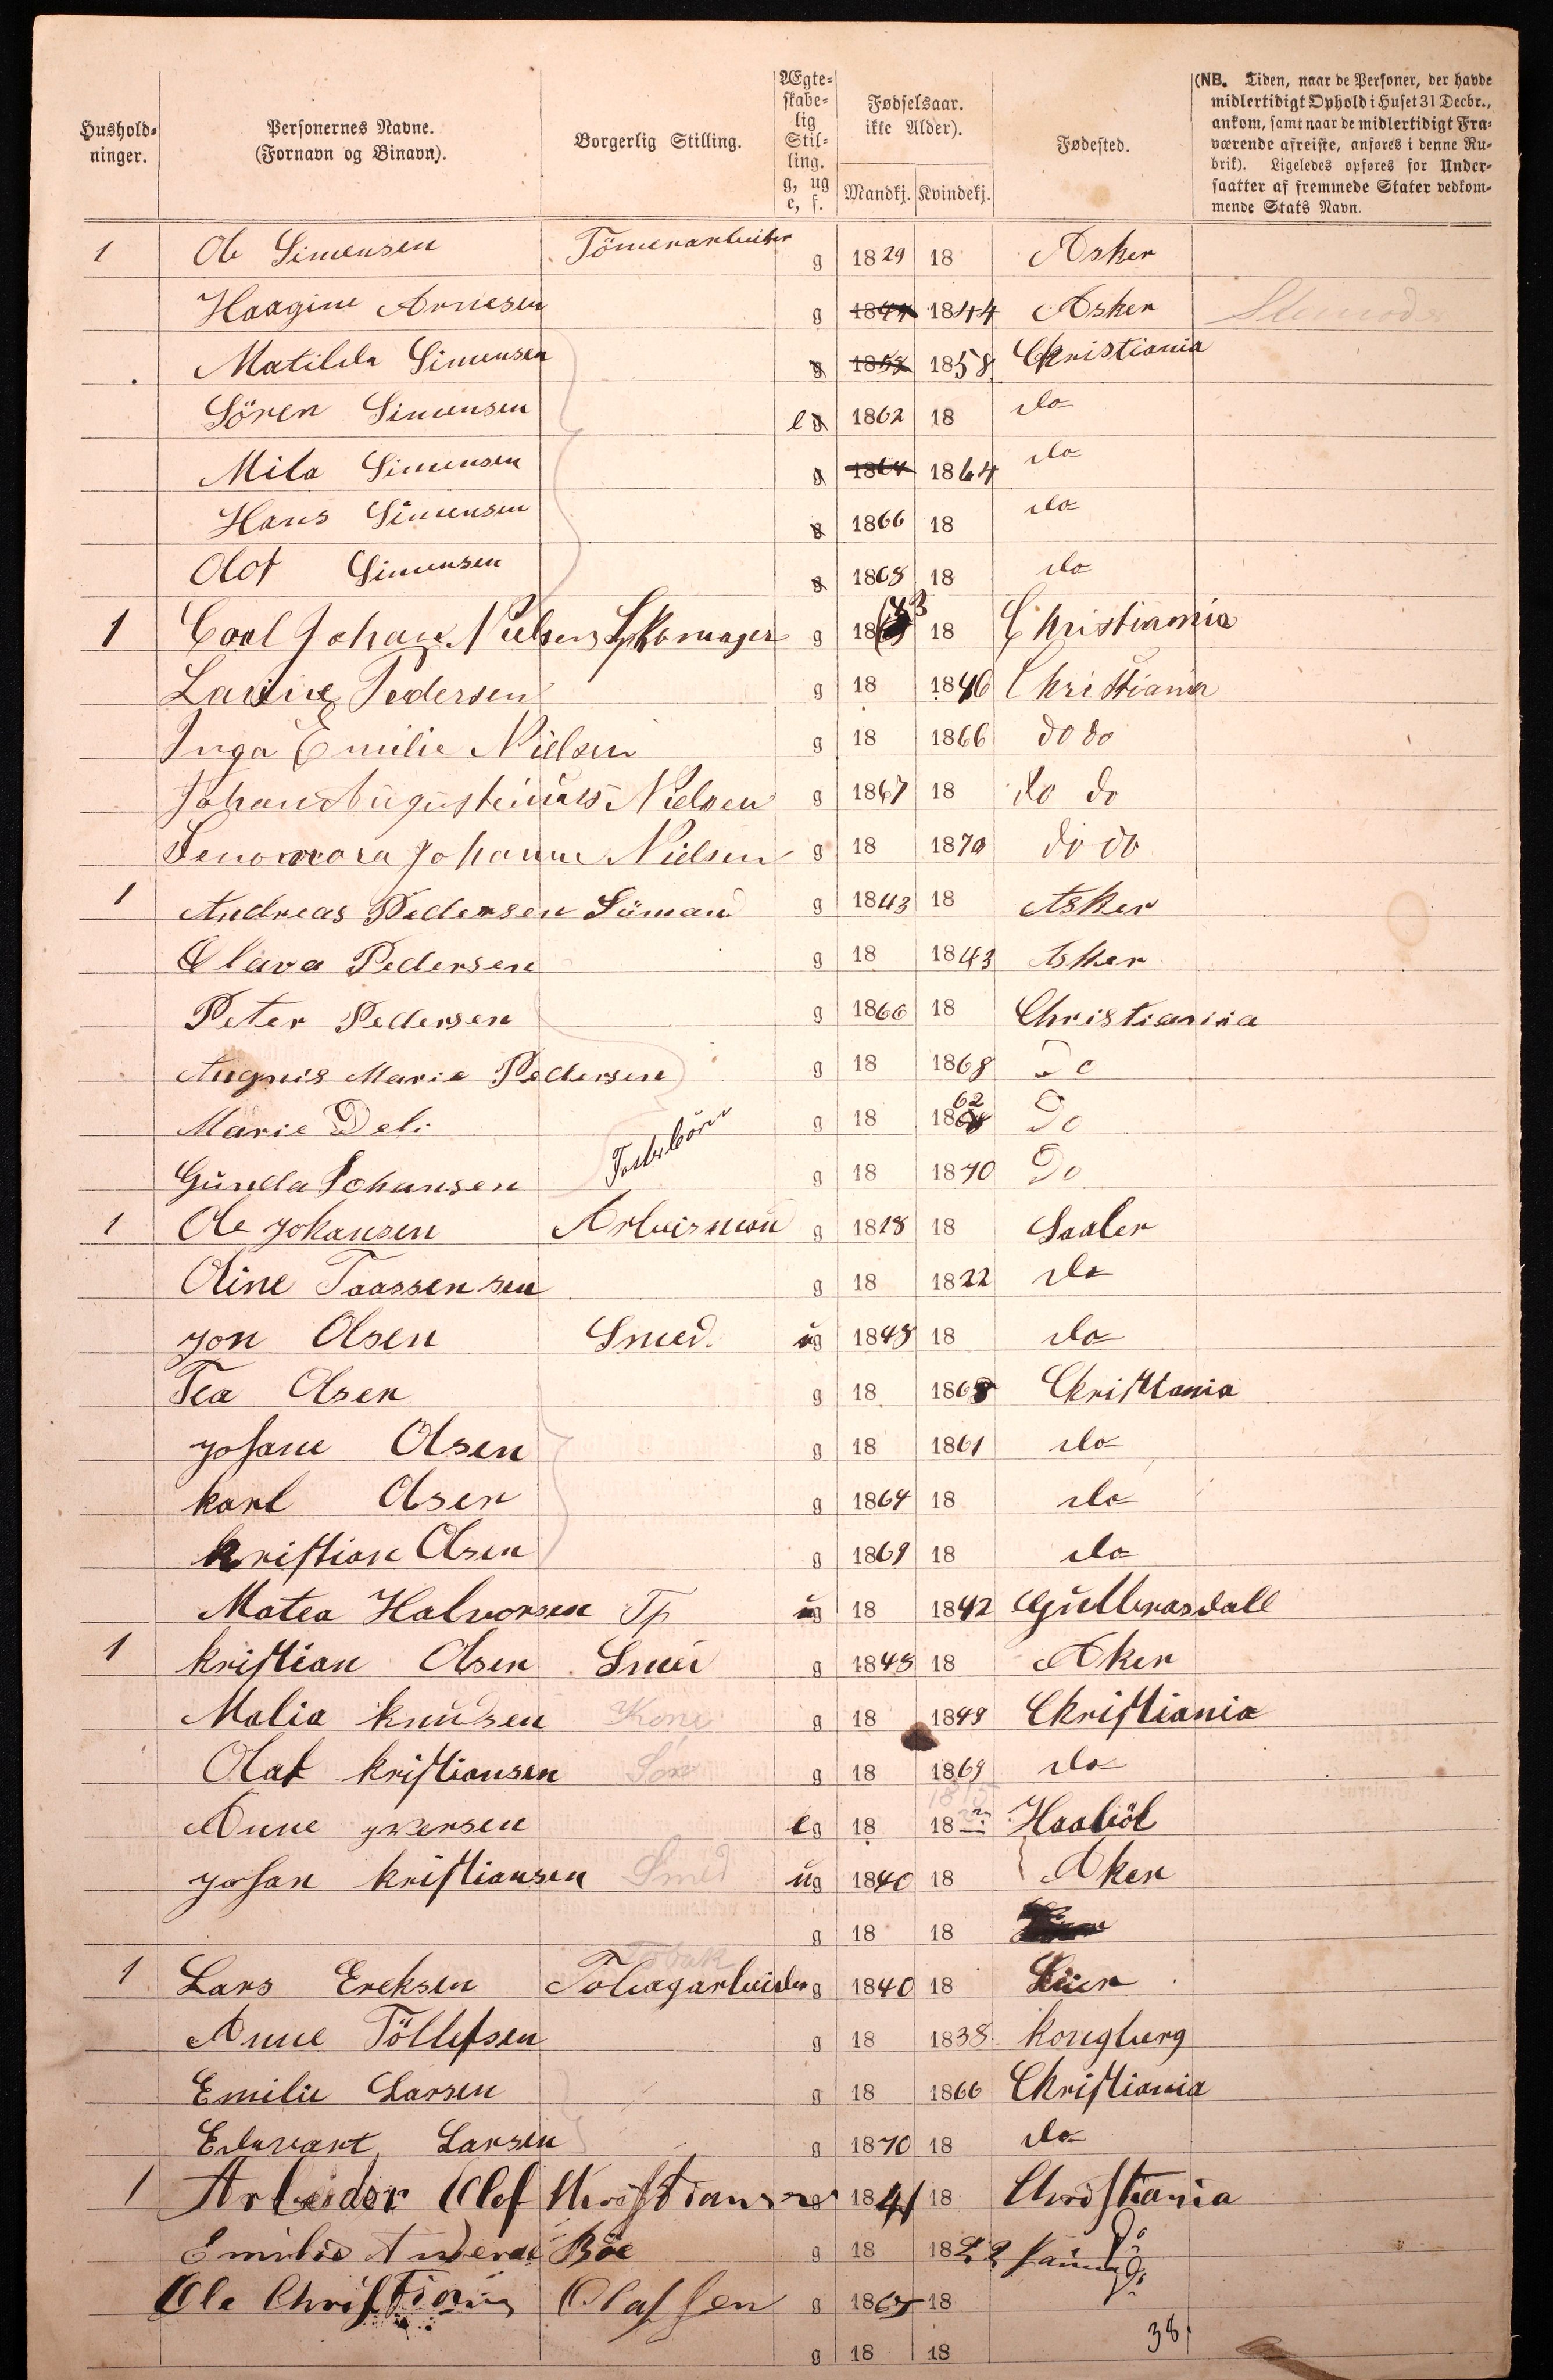 Hushold-
ninger.
Personernes Navne.
(Fornavn og Binavn).
Borgerlig Stilling.
Ægte-
skabe-
lig
Stil-
ling.
g, ug
e, f.
Fødselsaar.
ikke Alder).
Mandkj. Kvindekj.
Fødested.
(NB. Tiden, naar de Personer, der havde
midlertidigt Ophold i Huset 31 Decbr.,
ankom, samt naar de midlertidigt Fra-
værende afreiste, anføres i denne Ru-
brik). Ligeledes opføres for Under-
saatter af fremmede Stater vedkom-
mende Stats Navn.
1 Ole Simensen Tömerarbeider g 1829 18 Asker
Haagine Arnesen g 1844 1844 Asker
Matilda Simensen g 1858 1858 Christiania
Sören Simensen e g 1862 18 do
Mila Simensen g 1864 1864 do
Hans Simensen g 1866 18 do
Olof Simensen g 1868 18 do
1 Carl Johan Nielsen Skomager g 18 43 18 Christiania
Lavine Pedersen g 18 1846 Christiania
Inga Emilie Nielsen g 18 1866 do do
Johan Augusteinius Nielsen g 1867 18 do do
Johanne Nielsen g 18 1870 do do
1 Andreas Pedersen Sömand g 1843 18 Asker
Olava Pedersen g 18 1843 Asker
Peter Pedersen g 1866 18 Christianina
Augnis Marie Pedersen g 18 1868 Do
Marie Deli g 18 1868 62 Do
Gunda Johansen Fosterbörn g 18 1870 Do
1 Ole Johansen Arbeisman g 1818 18 Saaler
Oline Taassensen g 18 1822 do
Jon Olsen Smed. ug 1848 18 do
Tea Olsen g 18 1868 Christiania
Johane Olsen g 18 1861 do
Karl Olsen g 1864 18 do
Kristian Olsen g 1869 18 do
Matea Halvorsen Tp ug 18 1842 Gulbrasdall
1 Kristian Olsen Smed g 1848 18 Aker
Malia Knudsen Kone g 18 1849 Christiania
Olaf Kristiansen Søn g 18 1869 do
Anne Iversen eg 18 18 Haaböl
Johan Kristiansen Smed ug 1840 18 Aker
g 18 18
Tobak
1 Lars Ereksen Tobagarbeider g 1840 18 Lier
Anne Töllefsen g 18 1838 Kongberg
Emilie Larsen g 18 1866 Christiania
Edevart Larsen g 1870 18 do
1 Arbeider Olef Kristiansen g 1841 18 Christiania
Emilie Böe g 18 18
Ole Christian Olafsen g 1865 18
38
g 18 18